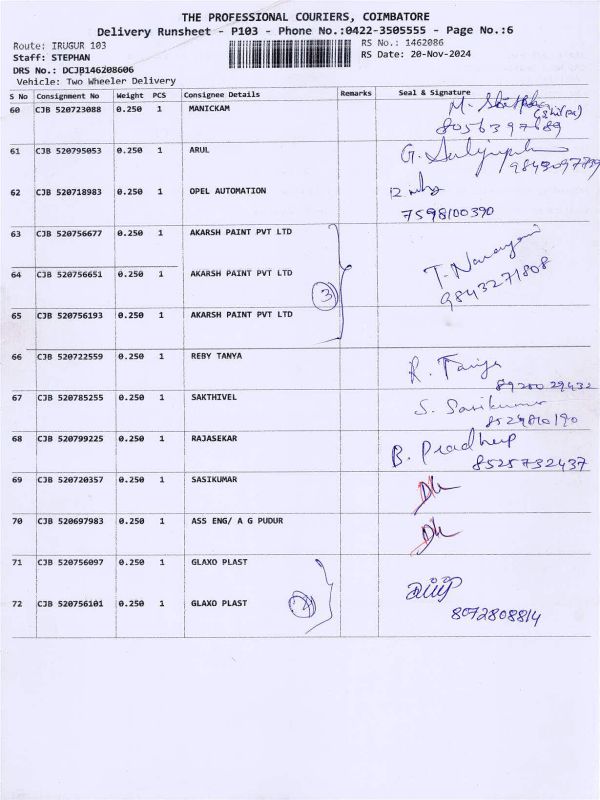 THE PROFESSIONAL COURIERS, COIMBATORE
Delivery Runsheet - P103 - Phone No.:0422-3505555 - Page No.:6
Route: IRUGUR 103
RS No.: 1462086
Staff: STEPHAN
RS Date: 20-Nov-2024
DRS No.: DCJB146208606
Vehicle: Two Wheeler Delivery
S No Consignment No Weight PCS Consignee Details Remarks Seal & Signature
60 CJB 520723088 0.250 1 MANICKAM M.
8056397689
61 CJB 520795053 0.250 1 ARUL G.
62 CJB 520718983 0.250 1 OPEL AUTOMATION
7598100390
63 CJB 520756677 0.250 1 AKARSH PAINT PVT LTD
64 CJB 520756651 0.250 1 AKARSH PAINT PVT LTD 3 T. Narayani
9843271808
65 CJB 520756193 0.250 1 AKARSH PAINT PVT LTD
66 CJB 520722559 0.250 1 REBY TANYA R. Taniya
8920029432
67 CJB 520785255 0.250 1 SAKTHIVEL S. Sasikumar
8524810190
68 CJB 520799225 0.250 1 RAJASEKAR B. Pradheep
8525732437
69 CJB 520720357 0.250 1 SASIKUMAR
70 CJB 520697983 0.250 1 ASS ENG/ A G PUDUR
71 CJB 520756097 0.250 1 GLAXO PLAST
72 CJB 520756101 0.250 1 GLAXO PLAST 2
8072808814